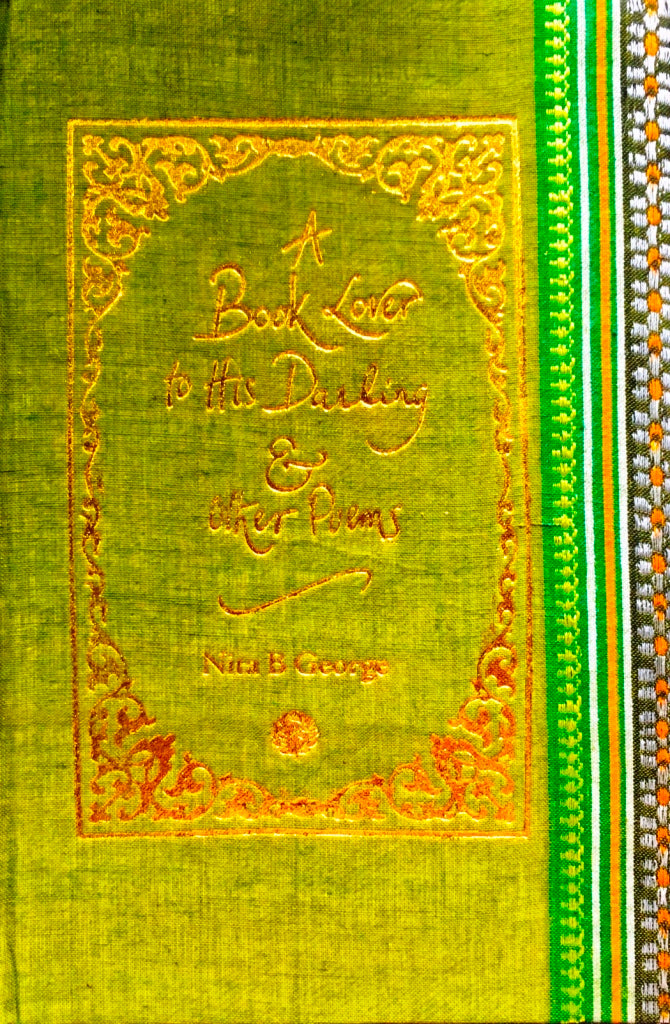 A
Book Lover
to His Darling
&
Other Poems
Nita B George